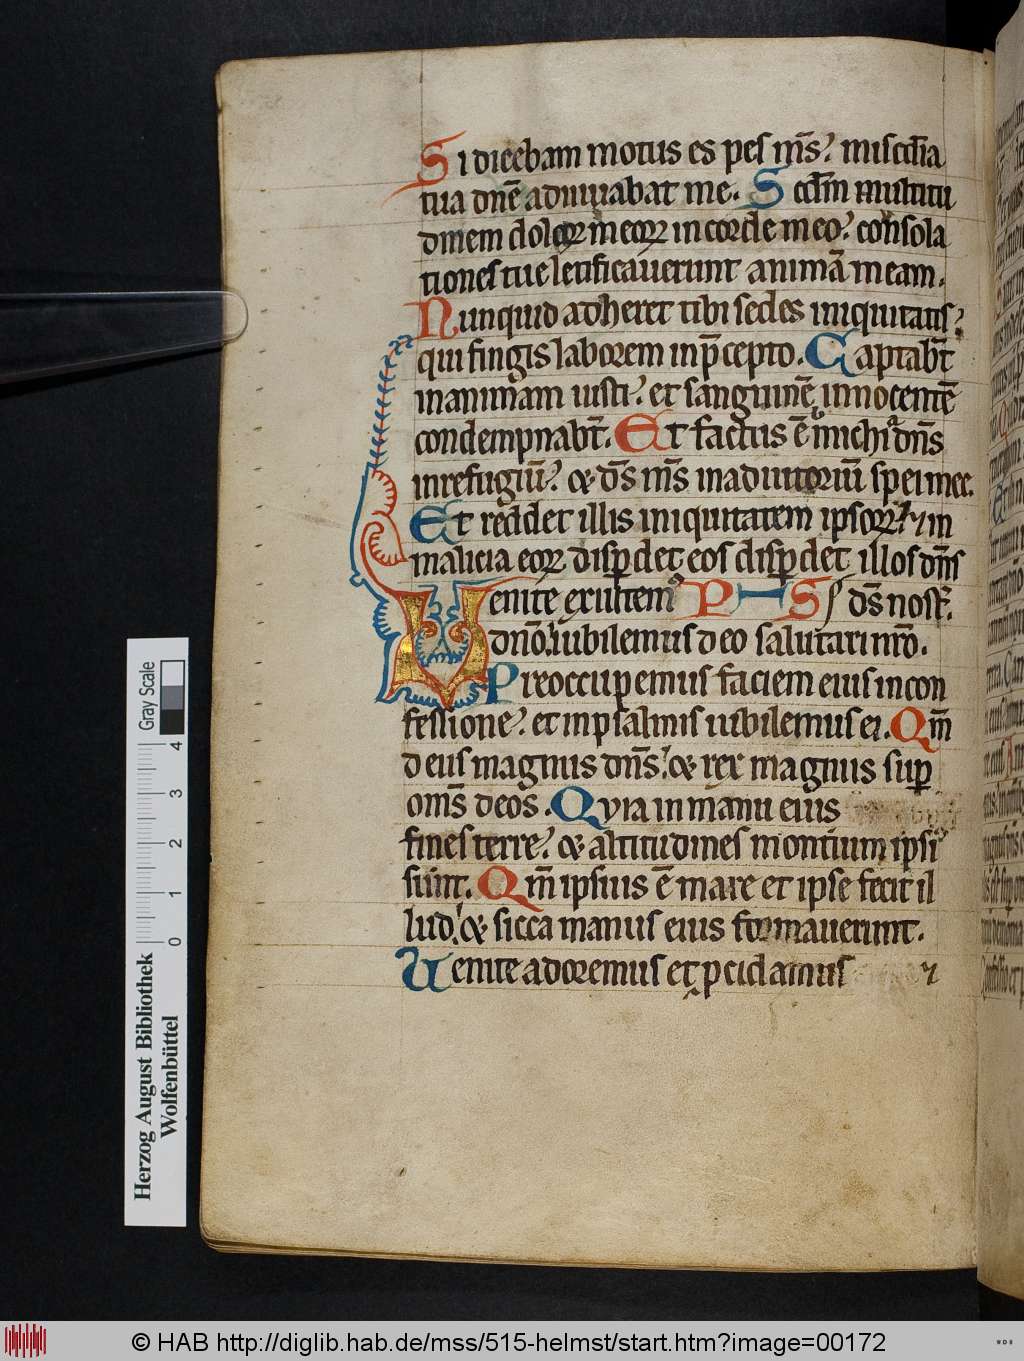 Si dicebam motus es pes ms̄? miscd̄ia
tua dn̄e adiuuabat me. Scdm̄ multitu
dinem doloꝝ meoꝝ in corde meo? consola
tiones tue letificauerunt animā meam.
Nunquid adheret tibi sedes iniquitatis?
qui fingis laborem in p̄cepto. Captabt̄
in animam iusti? et sanguinē innocentē
condempnabt̄. Et factus ē michi dn̄s
in refugiū? & ds̄ ms̄ in adiutoriū spei mee.
Et reddet illis iniquitatem ipsoꝝ ⁊ in
malicia eoꝝ disꝑdet eos disꝑdet illos dn̄s
Uenite exultem᷒ PHS ds̄ nost̄.
dn̄o iubilemus deo salutari nr̄o.
Preoccupemus faciem eius in con
fessione? et in psalmis iubilemus ei. Qm̄
deus magnus dn̄s? & rex magnus suꝑ
oms̄ deos. Qyia in manu eius
fines terre? & altitudines montium ipsi᷒
sunt. Qm̄ ipsius ē mare et ipse fecit il
lud? & sicca manus eius formauerunt.
Uenite adoremus et pcidamus ⁊
Gray Scale
4 3 2 1 0
Herzog August Bibliothek
Wolfenbüttel
© HAB http://diglib.hab.de/mss/515-helmst/start.htm?image=00172